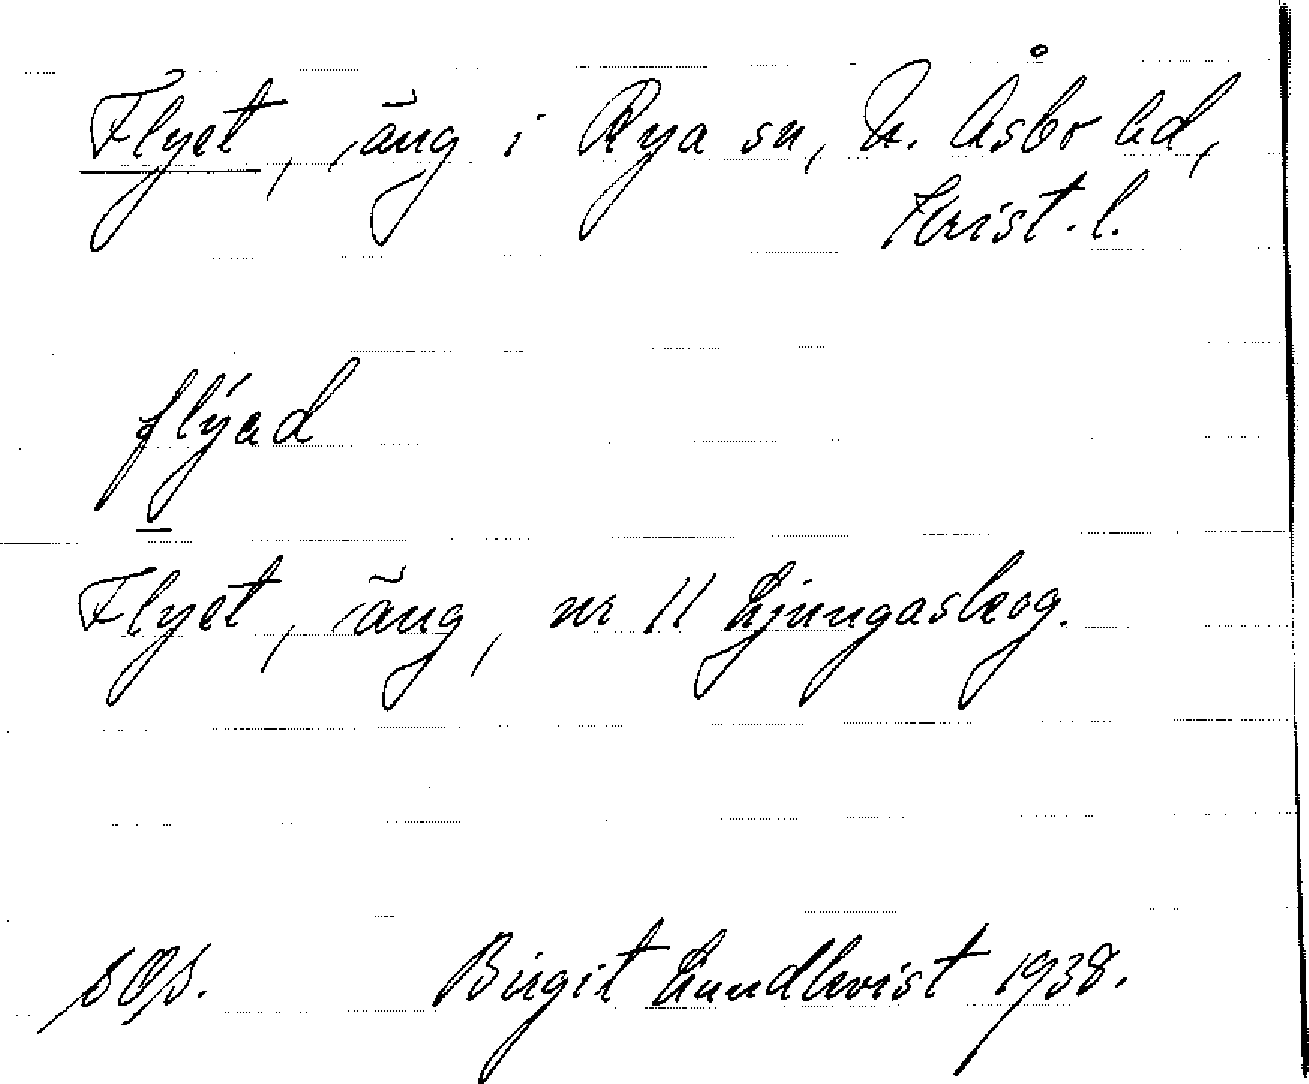 Flyet, äng i Rya sn, N. Åsbo hd,
Krist. l.
flýad
Flyet, äng, nr 11 Ljungaskog.
sOs. Birgit Lundkvist 1938.